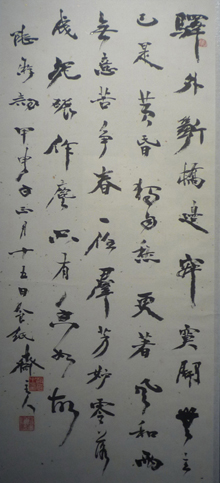 驛外斷橋邊寂寞開無主
已是黃昏獨自愁更著風和雨
無意苦爭春一任羣芳妒零落
成泥碾作塵只有香如故
甲申年正月十五日齋主人